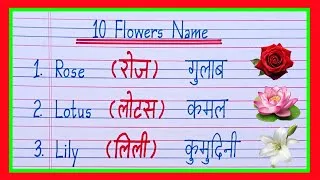 10 Flowers Name
1. Rose (रोज) गुलाब
2. Lotus (लोटस) कमल
3. Lily (लिली) कुमुदिनी